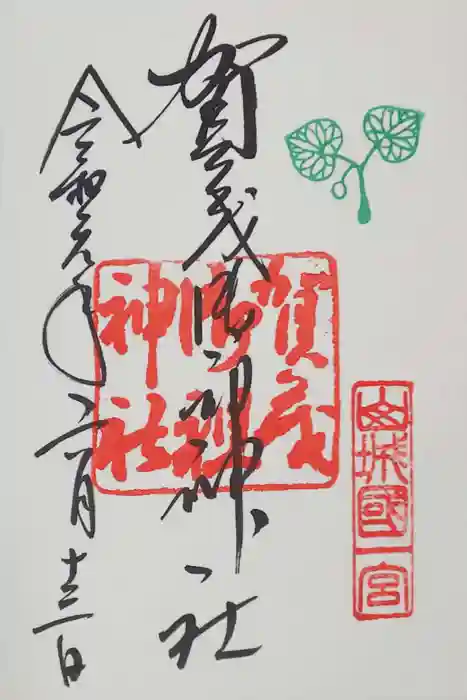 山城國一宮
賀茂御祖神社
賀茂
御祖
神社
令和元年六月十三日